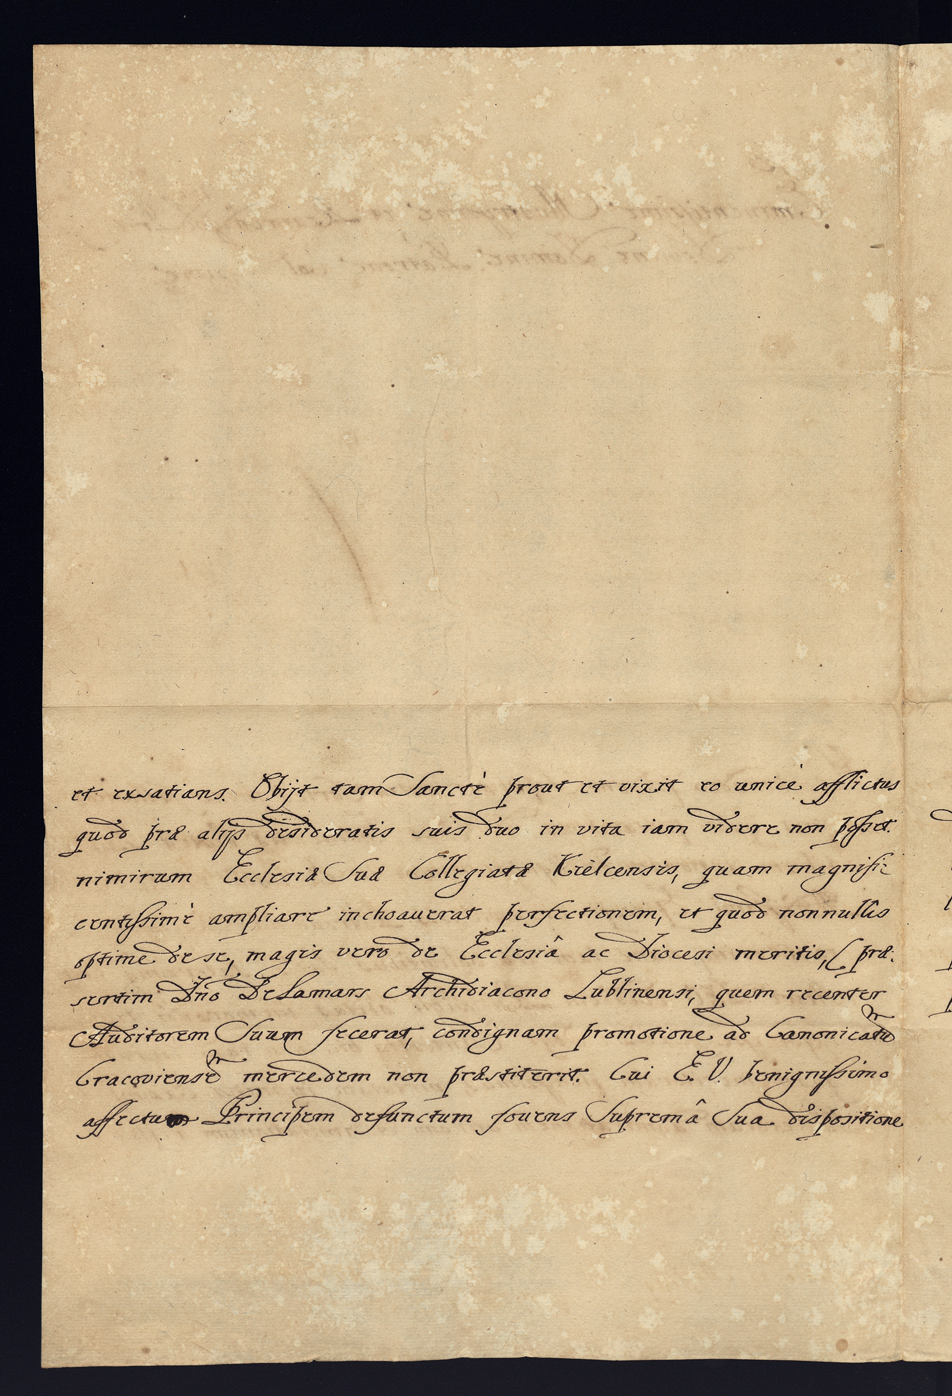 et exsatians. Obijt tam Sanctè prout et vixit eo unicè afflictus
quod præ alijs desideratis suis duo in vita iam videre non posset.
nimirum Ecclesiæ Suæ Collegiatæ Kielcensis, quam magnifi:
centissimè ampliare inchoauerat perfectionem, et quod nonnullis
optime de se, magis vero de Ecclesiâ ac Diocesi meritis, (præ:
sertim Dno DeLamars Archidiacono Lublinensi, quem recenter
Auditorem Suum fecerat, condignam promotione ad Canonicatu
Cracoviense mercedem non præstiterit. Cui E. V. benignissimo
affectu Principem defunctum fovens Supremâ Sua dispositione